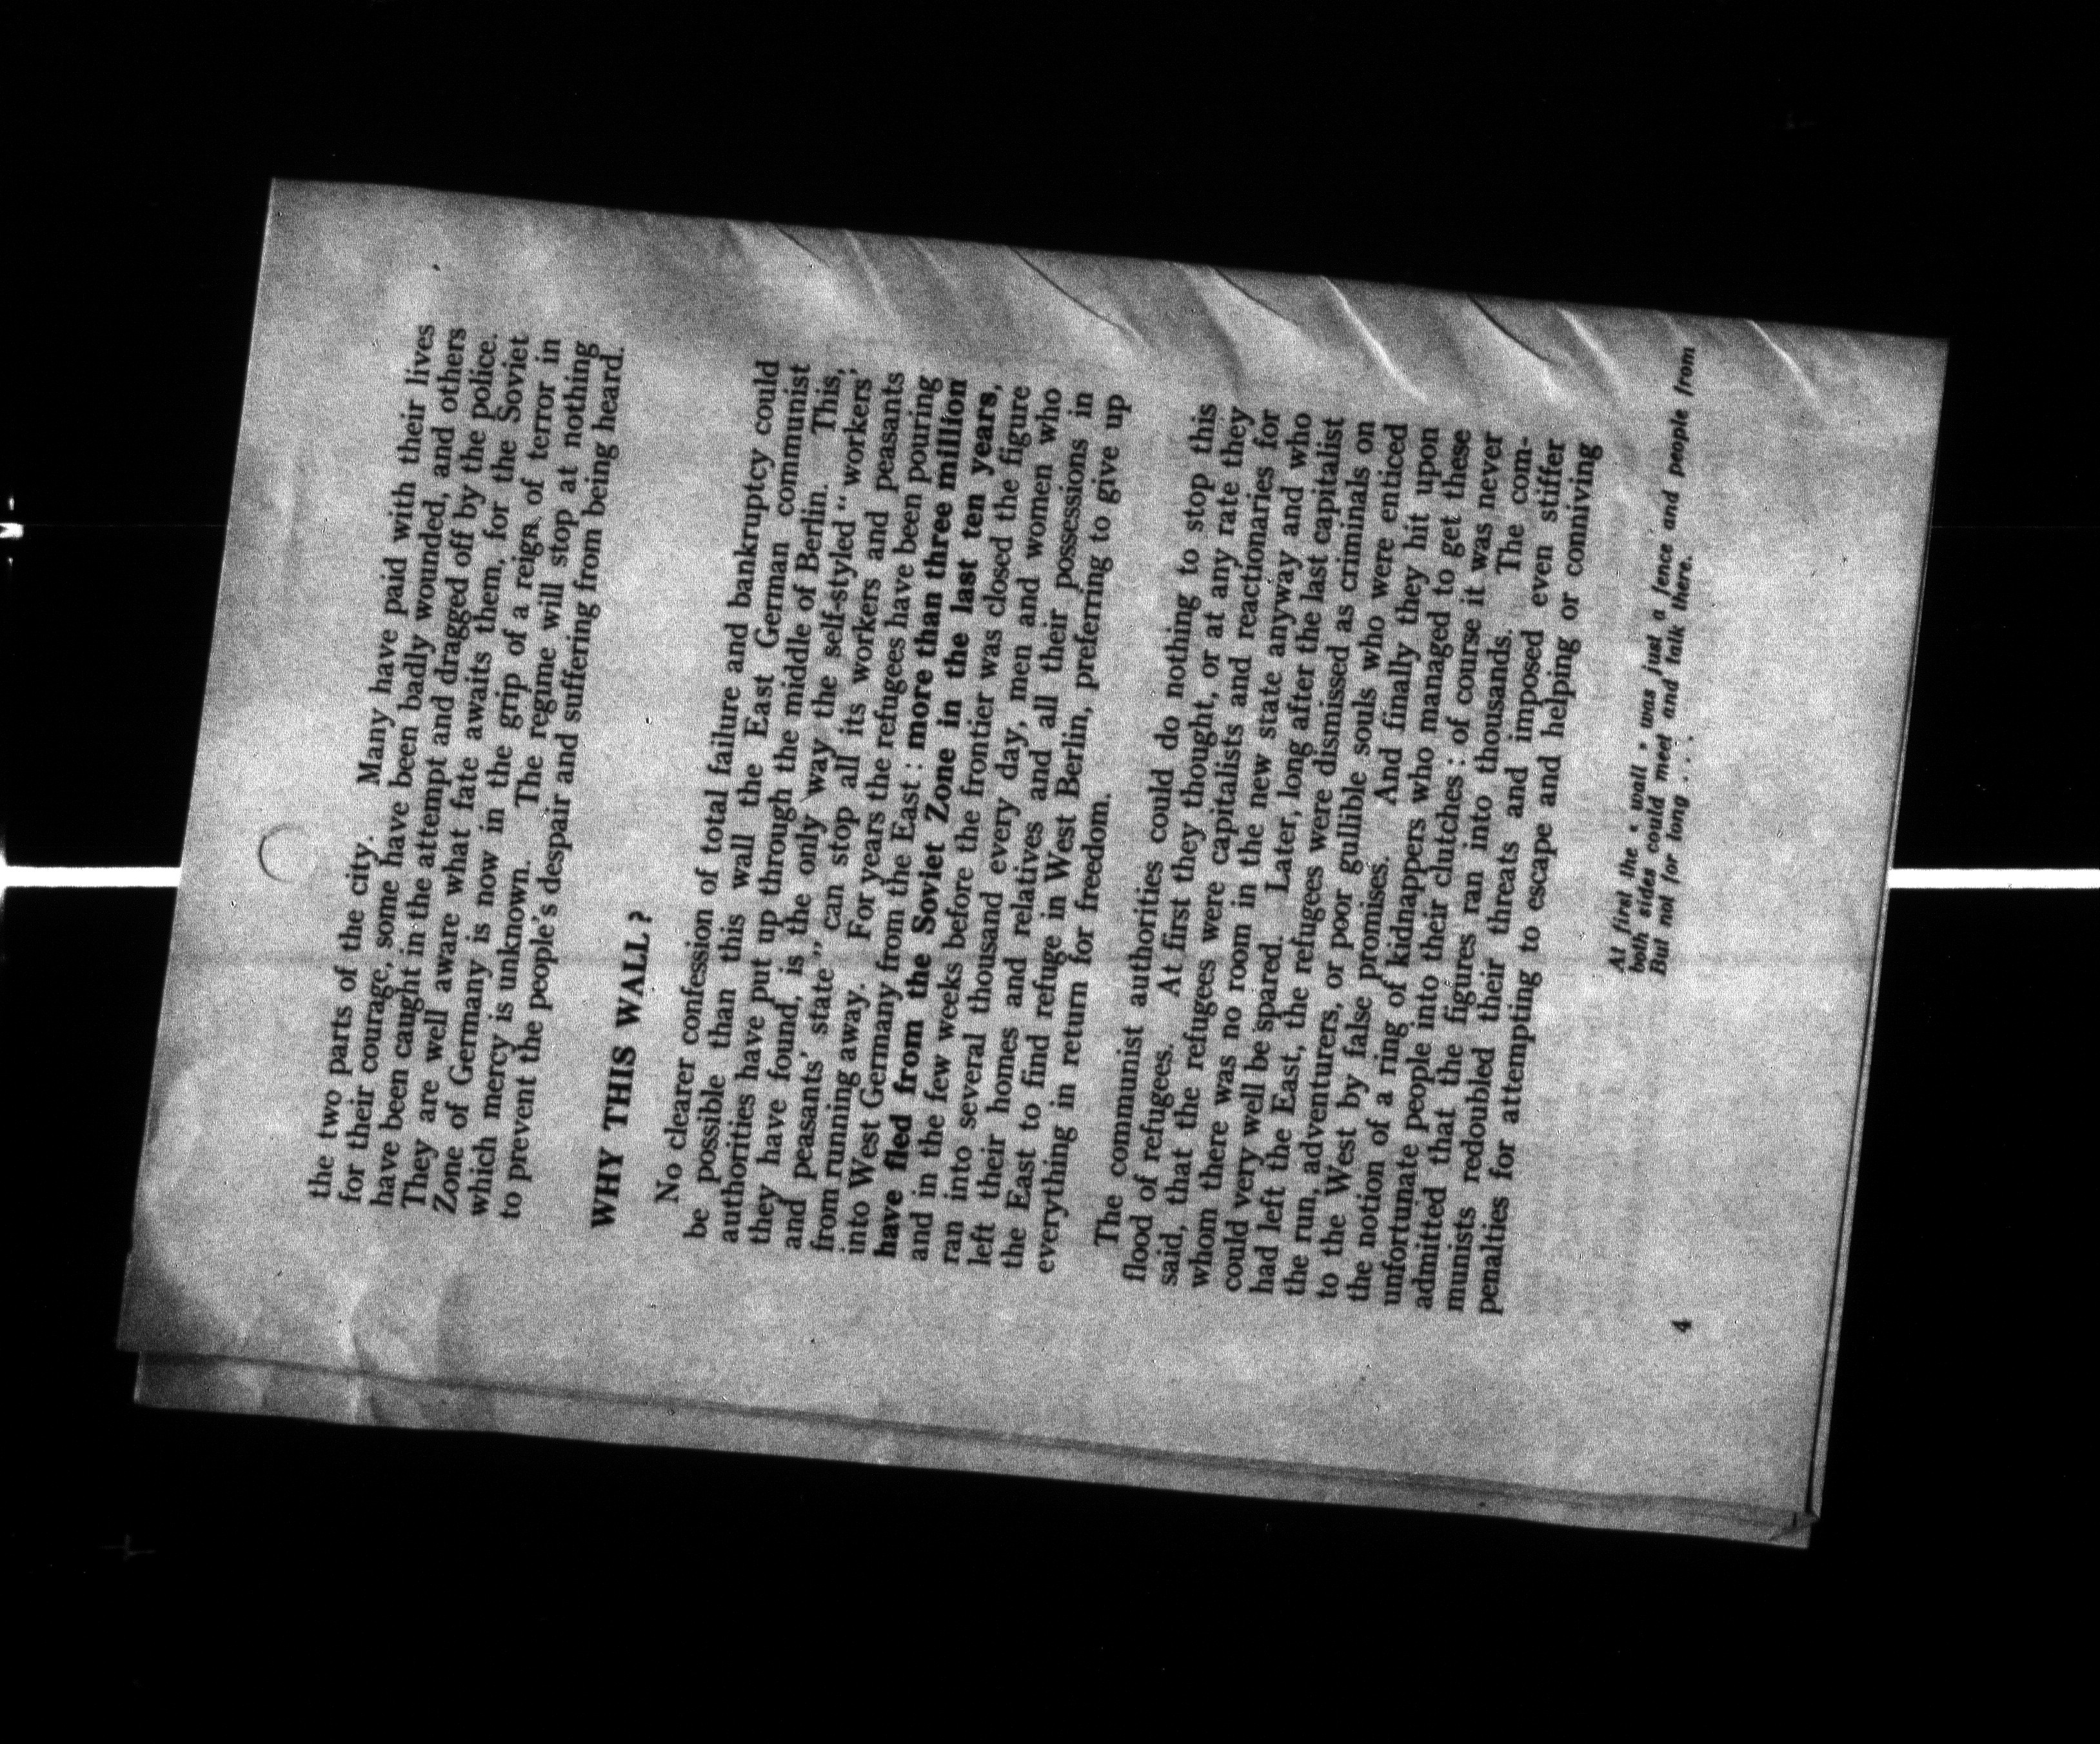 the two parts of the city. Many have paid with their lives
for their courage, some have been badly wounded, and others
have been caught in the attempt and dragged off by the police.
They are well aware what fate awaits them, for the Soviet
Zone of Germany is now in the grip of a reign of terror in
which mercy is unknown. The regime will stop at nothing
to prevent the people's despair and suffering from being heard.
WHY THIS WALL ?
No clearer confession of total failure and bankruptcy could
be possible than this wall the East German communist
authorities have put up through the middle of Berlin. This,
they have found, is the only way the self-styled " workers'
and peasants' state " can stop all its workers and peasants
from running away. For years the refugees have been pouring
into West Germany from the East : more than three million
have fled from the Soviet Zone in the last ten years,
and in the few weeks before the frontier was closed the figure
ran into several thousand every day, men and women who
left their homes and relatives and all their possessions in
the East to find refuge in West Berlin, preferring to give up
everything in return for freedom.
The communist authorities could do nothing to stop this
flood of refugees. At first they thought, or at any rate they
said, that the refugees were capitalists and reactionaries for
whom there was no room in the new state anyway and who
could very well be spared. Later, long after the last capitalist
had left the East, the refugees were dismissed as criminals on
the run, adventurers, or poor gullible souls who were enticed
to the West by false promises. And finally they hit upon
the notion of a ring of kidnappers who managed to get these
unfortunate people into their clutches : of course it was never
admitted that the figures ran into thousands. The com-
munists redoubled their threats and imposed even stiffer
penalties for attempting to escape and helping or conniving
At first the " wall " was just a fence and people from
both sides could meet and talk there.
But not for long . . . .
4